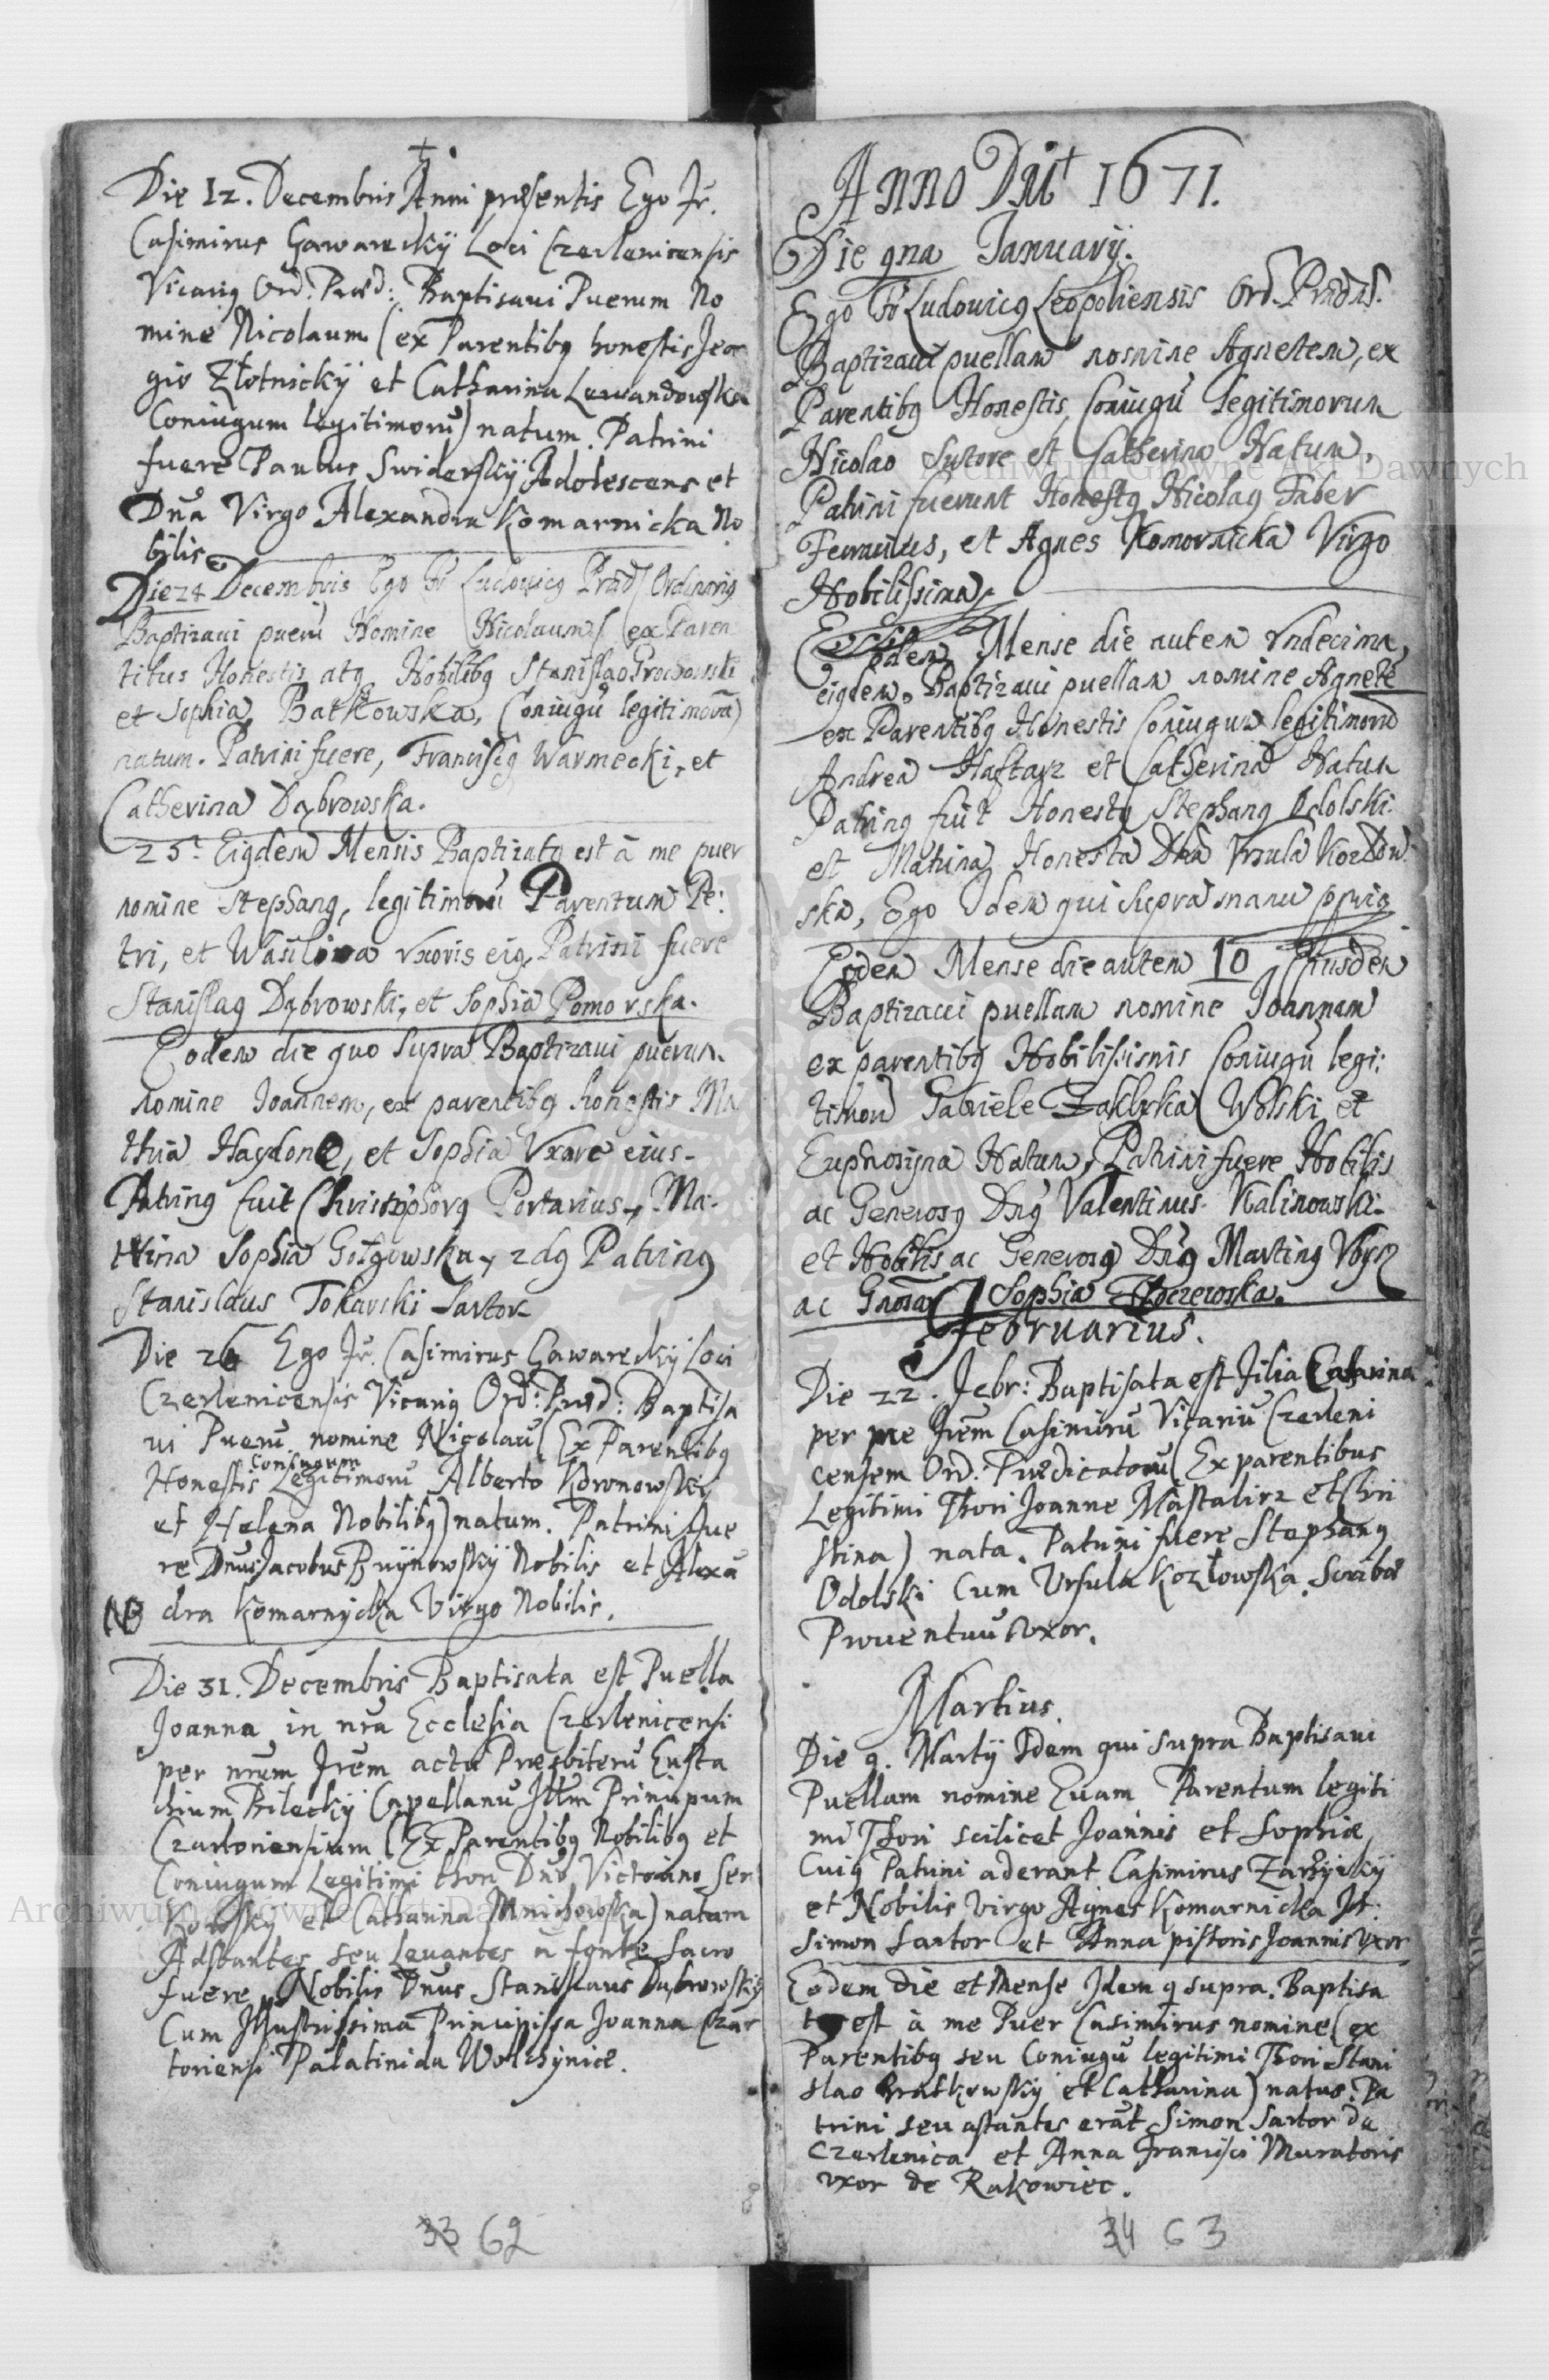 Die 12. Decembris Anni præsentis Ego Fr.
Casimirus Gawareckÿ Loci Czerlenicensis
Vicarig Ord. Præd: Baptisavi Puerum No
mine Nicolaum (ex Parentibg honestis Jeor
gio Złotnickÿ et Catharina Lewandowska
Coniugum legitimorū) natum. Patrini
fuere Paulus Swiderskÿ Adolescens et
Dna Virgo Alexandra Komarnicka No
bilis
Die 24 Decembris Ego Fr Ludovicg Præd Ordinarig
Baptizavi puerū Nomine Nicolaum (ex Paren
tibus Honestis atg Nobilibg Stanislao Grochowski
et Sophia Batkowska, Coniugū legitimorū)
natum. Patrini fuere, Franciscg Warmecki, et
Catherina Dąbrowska.
25. Eigdem Mensis Baptizatg est à me puer
nomine Stephang, legitimorū Parentum Pe:
tri, et Wasilina vxoris eig, Patrini fuere
Stanislag Dąbrowski, et Sophia Pomorska.
Eodem die quo supra Baptizavi puerum
nomine Joannem, ex parentibg honestis Ma
thia Haydone, et Sophia Vxore eius.
Patring fuit Christophorg Portarius, Ma:
trina Sophia Gołgowska, 2dg Patring
Stanislaus Tokarski Sartor
Die 26 Ego Fr. Casimirus Gawareckÿ Loci
Czerlenicensis Vicarig Ord: Præd: Baptisa
vi Puerū nomine Nicolaū (Ex Parentibg
Coniugum
Honestis Legitimorū Alberto Koronowski
et Helena Nobilibg) natum. Patrini fue
re Dnus Jacobus Bruÿnowskÿ Nobilis et Alexā
NB dra Komarnycka Virgo Nobilis.
Die 31. Decembris Baptisata est Puella
Joanna in nra Ecclesia Czerlenicensi
per nrum Frem actu Presbiterū Eusta
chium Bileckÿ Capellanū Illm Principum
Czartoriensium (Ex Parentibg Nobilibg et
Coniugum Legitimi thori Dno Victorino Ser
kowskÿ et Catharina Mnichowska) natam
Adstantes seu Levantes à fonte sacro
fuere Nobilis Dnus Stanislaus Dąbrowskÿ
Cum Illustrissima Principissa Joanna Czar
toriensi Palatinida Wolhÿniæ.
33 62
Anno Dni 1671.
Die 9na Januarÿ.
Ego Fr Ludovicg Leopoliensis Ord. Prædis.
Baptizavi puellam nomine Agnetem, ex
Parentibg Honestis Coniugū legitimorum
Nicolao Sutore et Catherina Natum.
Patrini fuerunt Honestg Nicolag Faber
Ferrarius, et Agnes Komornicka Virgo
Nobilissima.
Eodem Mense die autem vndecima,
eigdem Baptizavi puellam nomine Agnetē
ex Parentibg Honestis Coniugum legitimorū
Andrea Haftarz et Catherina Natum
Patring fuit Honestg Stephang Odolski
et Matrina Honesta Dna Vrsula Kozłow
ska, Ego Idem qui supra manu pprig
Eodem Mense die autem 10 Eiusdem
Baptizavi puellam nomine Joannam
ex parentibg Nobilissimis Coniugū legi:
timorū Gabriele Zaklyka Wolski et
Euphrosyna Natum, Patrini fuere Nobilis
ac Generosg Dng Valentinus Kalinowski
et Nobilis ac Generosg Dng Marting
ac Gnosa Sophia
Februarius.
Die 22. Febr: Baptisata est Filia Catarina
per me Frem Casimirū Vicariū Czerleni
censem Ord. Prædicatorū (Ex parentibus
Legitimi Thori Joanne Mastalirz et Chri
stina) nata. Patrini fuere Stephang
Odolski Cum Ursula Kozłowska Scribæ
Proventuū Vxor.
Martius.
Die 9. Martÿ Idem qui supra Baptisavi
Puellam nomine Evam Parentum legiti
mi Thori scilicet Joannis et Sophiæ
Cuig Patrini aderant Casimirus Zarzÿckÿ
et Nobilis Virgo Agnes Komarnicka It:
Simon Sartor et Anna pistoris Joannis vxor
Eodem Die et Mense Idem q supra. Baptisa
tg est à me Puer Casimirus nomine (ex
Parentibg seu Coniugū legitimi Thori Stani
slao Bratkowskÿ et Catharina) natus. Pa
trini seu astantes erāt Simon Sartor de
Czerlenica et Anna Francisci Muratoris
vxor de Rakowiec.
34 63
Archiwum Główne Akt Dawnych
Archiwum Główne Akt Dawnych